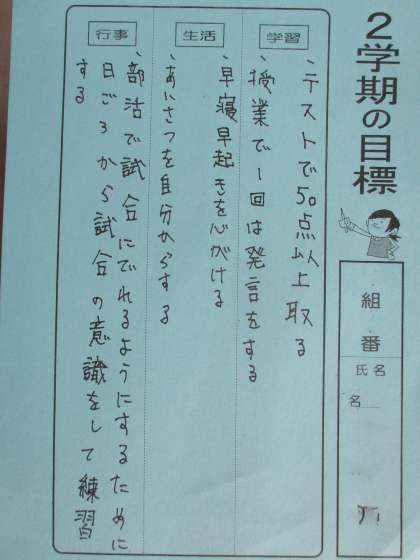 2学期の目標
組
番
氏名
名
学習
・テストで50点以上取る
・授業で1回は発言をする
生活
・早寝早起きを心がける
・あいさつを自分からする
行事
・部活で試合にでれるようにするために
日ごろから試合の意識をして練習
する